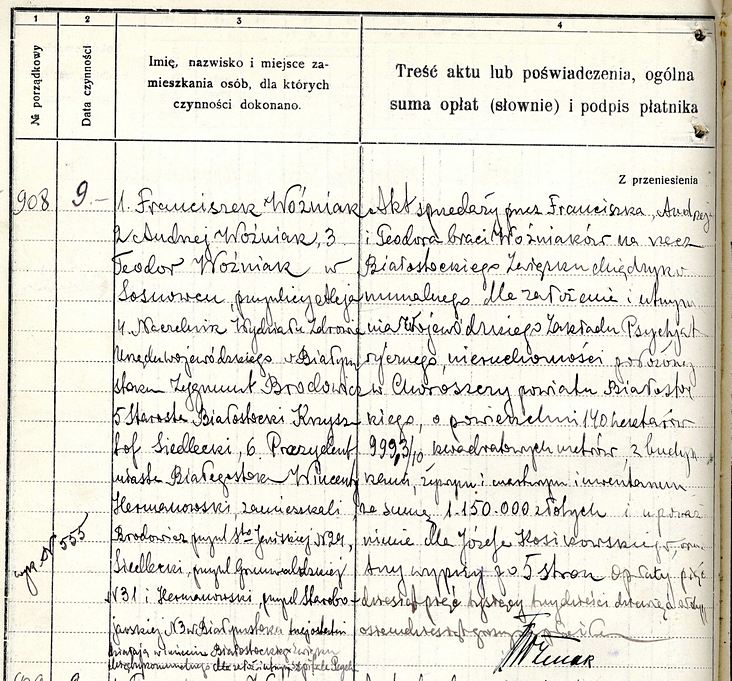 1 2 3 4
№ porządkowy
Data czynności
Imię, nazwisko i miejsce za-
mieszkania osób, dla których
czynności dokonano.
Treść aktu lub poświadczenia, ogólna
suma opłat (słownie) i podpis płatnika
Z przeniesienia
908
9.—
1. Franciszek Woźniak
2 Andrzej Woźniak, 3
Teodor Woźniak w
Sosnowcu, przy ulicy
4. Naczelnik Wydziału Zdrowia
Urzędu wojewódzkiego w Białym
stoku Zygmunt Brodowicz
5 Starosta Białostocki Krzysz
tof Siedlecki, 6. Prezydent
miasta Białegostoku Wincenty
Hermanowski, zamieszkali
Brodowicz przy ul Sto Jańskiej N24,
Siedlecki, przy ul Grunwaldzkiej
N31 i Hermanowski, przy ul Starobo-
jarskiej N3 w Białymstoku trzej ostatni
działają w imieniu Białostockiego Związku
Międzykomunalnego dla
wyp. N 555
Akt sprzedaży przez Franciszka, Andrzeja
i Teodora braci Woźniaków na rzecz
Białostockiego Związku Międzyko
munalnego dla założenia i utrzyma
nia Wojewódzkiego Zakładu Psychjat
rycznego, nieruchomości położonej
w Choroszczy powiatu Białostoc
kiego, o powierzchni 140 hektarów
9993/10 kwadratowych metrów z budyn
kami, żywym i martwym inwentarzem
za sumę 1.150.000 złotych i upoważ
nienie dla Józefa Kosikowskiego, oraz
trzy wypisy po 5 stron Opłaty pięć
dziesiąt pięć tysięcy trzydzieści dziewięć złotych
osiemdziesiąt groszy